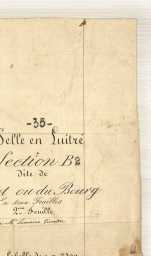 -35-
Selle en Luitré
Section B2
dite de
t ou du Bourg
en deux feuilles
2me feuille